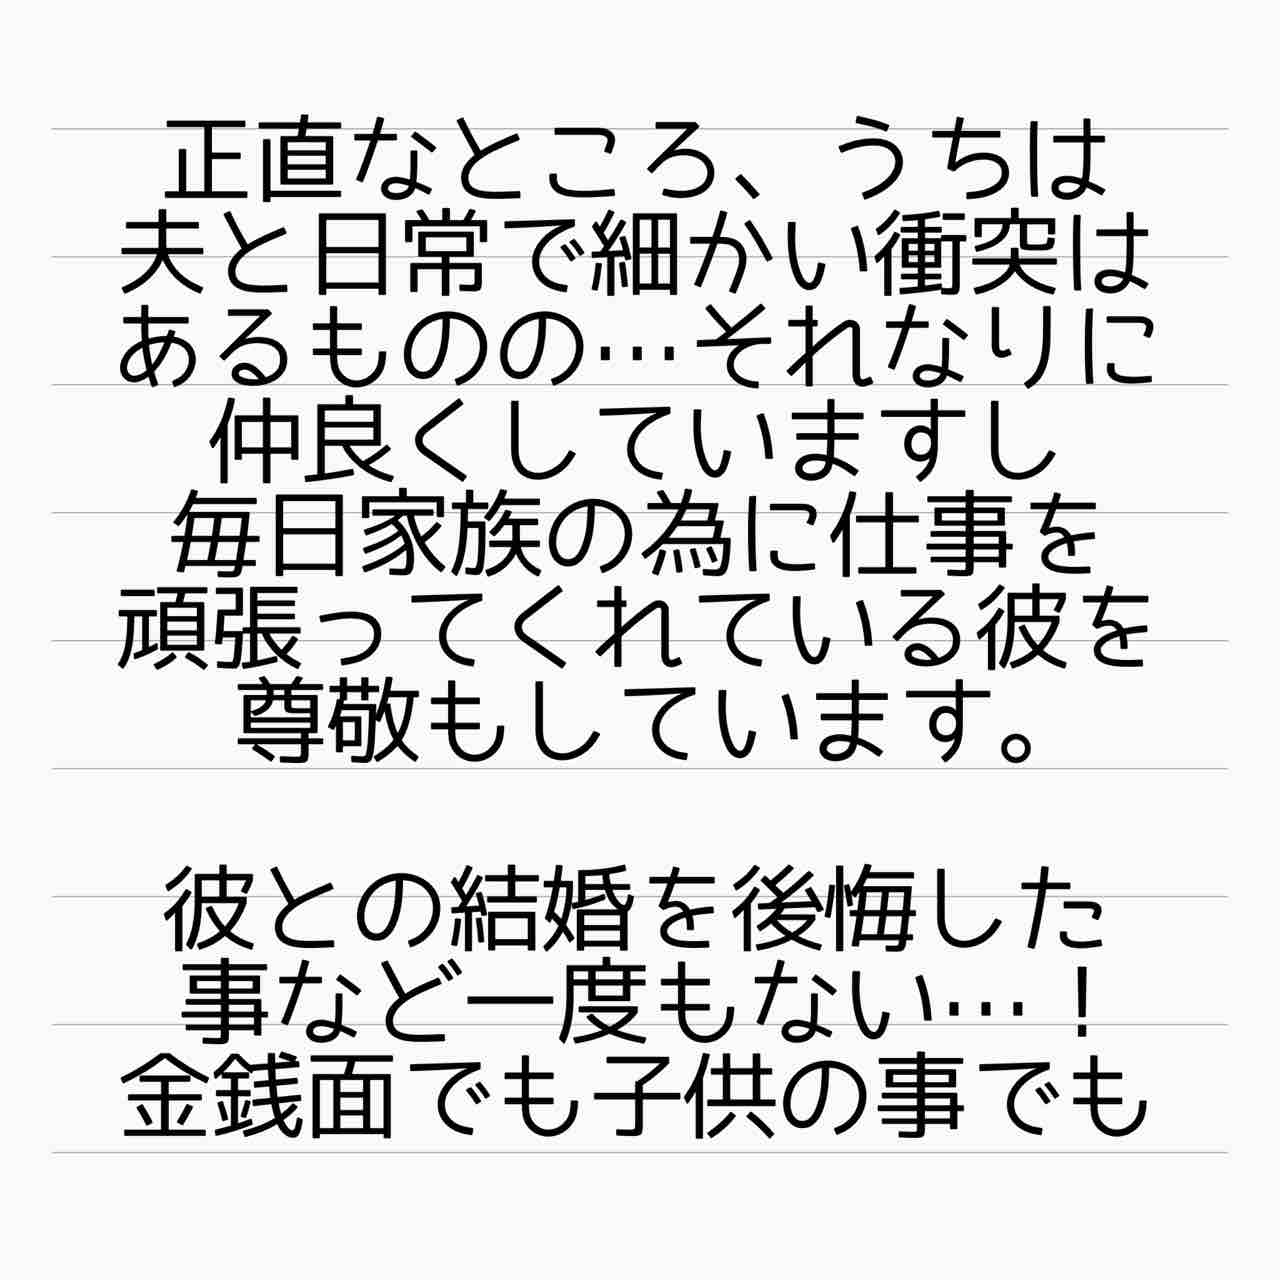 正直なところ、うちは
夫と日常で細かい衝突は
あるものの…それなりに
仲良くしていますし
毎日家族の為に仕事を
頑張ってくれている彼を
尊敬もしています。
彼との結婚を後悔した
事など一度もない…！
金銭面でも子供の事でも